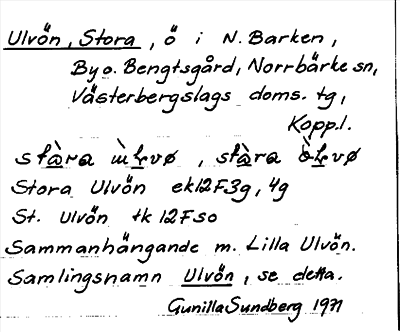 Ulvön, Stora, ö i N. Barken,
By o. Bengtsgård, Norrbärke sn,
Västerbergslags doms. tg,
Kopp.l.
stàra ùlvø, stàra òlvø
Stora Ulvön ek12F3g, 4g
St. Ulvön tk 12Fso
Sammanhängande m. Lilla Ulvön.
Samlingsnamn Ulvön, se detta.
Gunilla Sundberg 1971